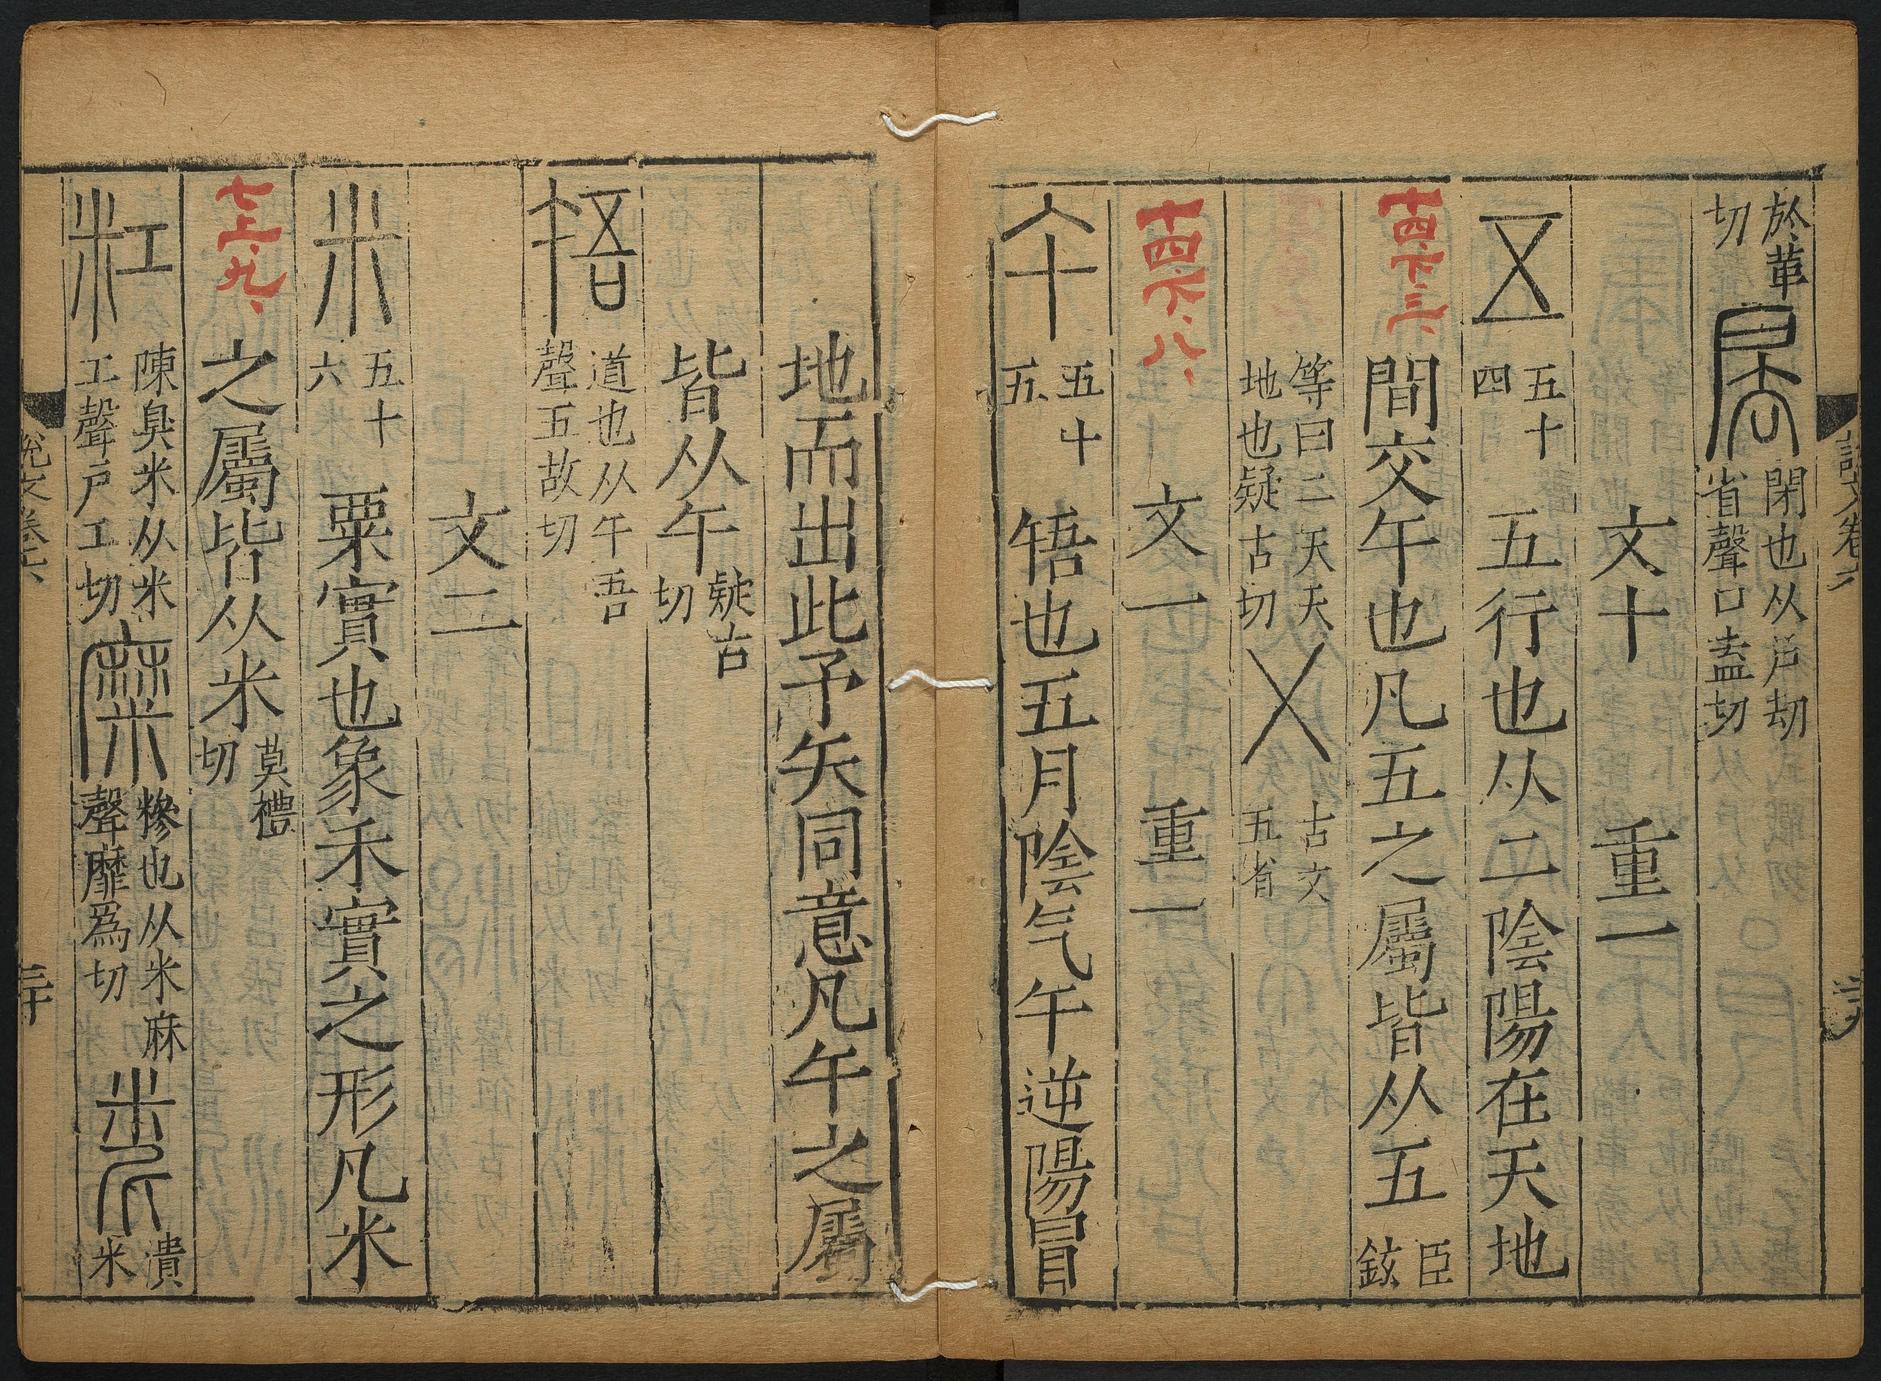 於革
切
閉也从戶劫
省聲口盍切
文十 重一
五十
四
五行也从二陰陽在天地
十四下三、
間交午也凡五之屬皆从五
臣
鉉
等曰二天天
地也疑古切
古文
五省
十四下、八、
文一 重一
五十
五
啎也五月陰气午逆陽冒
地而出此予矢同意凡午之屬
皆从午
疑古
切
啎
道也从午吾
聲五故切
文二
米
五十
六
粟實也象禾實之形凡米
七上、九、
之屬皆从米
莫禮
切
粠
陳臭米从米
工聲戶工切
糜
糝也从米麻
聲靡爲切
潰
米